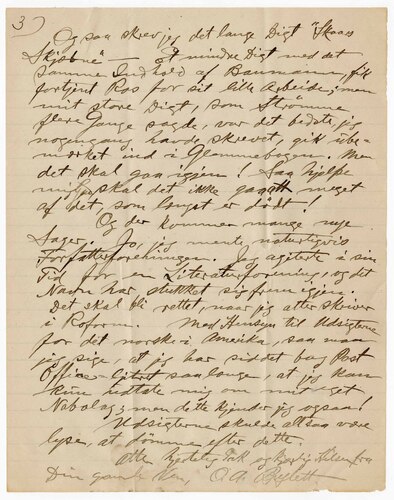 3
Og saa skrev jeg det lange Digt "Skaars
Skjæbne" — et mindre Digt med det
samme Indhold af Baumann, fik
fortjent Ros for sit lille Arbeide; men
mit store Digt, som Strømme
flere Gange sagde, var det bedste jeg
nogengang havde skrevet, gik ube-
mærket ind i Glemmebogen. Men
det skal gaa igjen! Saa hjælpe
mig, skal det ikke gaa meget
af det, som længst er dødt!
Og der kommer mange nye
Sager. Jo, jeg mente naturligvis
Forfatterforeningen. Jeg agiterte i sin
Tid for en Literaturforening, og det
Navn har stukket sig frem igjen.
Det skal bli rettet, naar jeg atter skriver
i Reform. Med Hensyn til Udsigterne
for det norske i Amerika, saa maa
jeg sige, at jeg har siddet bag Post
Office saa længe, at jeg kan
kun holde mig om mit eget
Nabolag; men dette kjender jeg ogsaa!
Udsigterne skulde altsaa være
lyse, at dømme efter dette.
Atter hjertelig Tak og kjærlig Hilsen fra
Din gamle Ven, O. A.